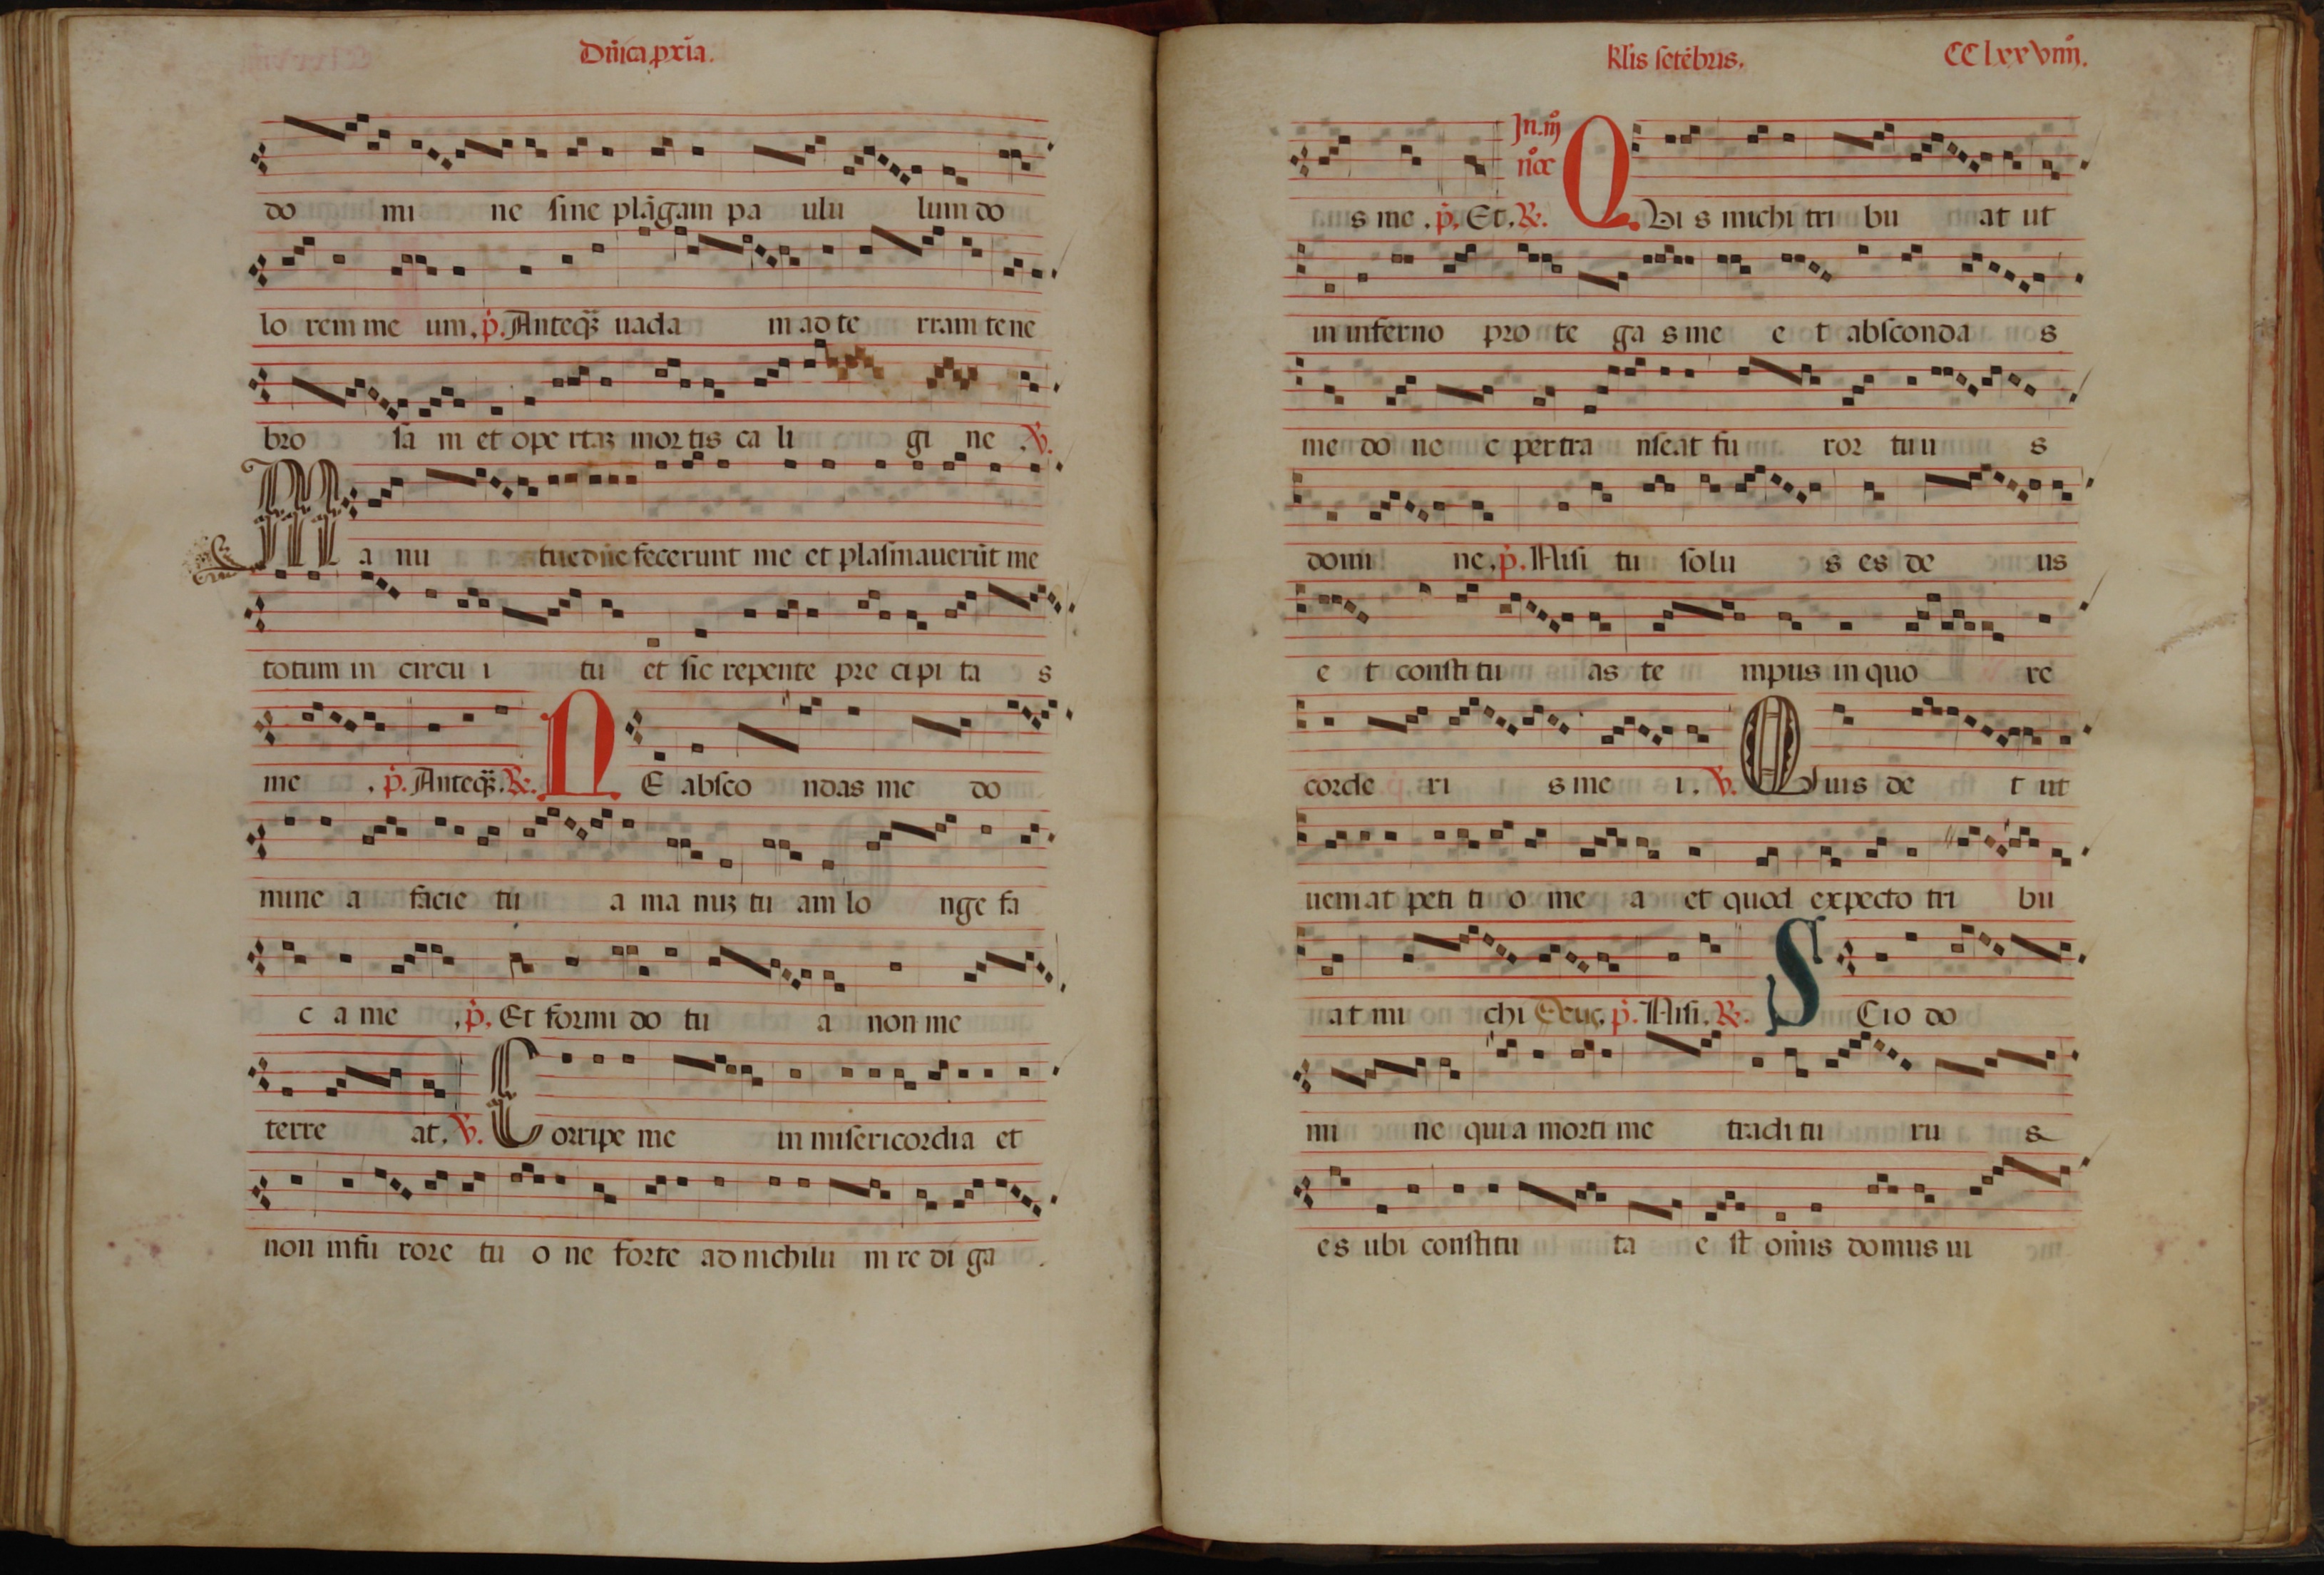 Dñica pxīa.
do mi ne sine plāgam pa ulu lum do
lo rem me um. p̄. Anteq̄ȝ uada m ad te rram tene
bro sa m et ope rtaȝ mor tis ca li gi ne .V.
M a nu tue dn̄e fecerunt me et plasmauerūt me
totum in circu i tu et sic repente pre cipi ta s
me . p̄. Anteq̄ȝ. R. N E absco ndas me do
mine a facie tu a ma nuȝ tu am lo nge fa
c a me . p̄. Et formi do tu a non me
terre at. V. C orripe me in misericordia et
non infu rore tu o ne forte ad nichilu m re di ga .
klis setēbris. CClxxviiij.
Jn. iij
noc
s me . p̄. Et. R. Q. Vi s michi tri bu at ut
in inferno pro te ga s me e t absconda s
me do ne c pertra nseat fu ror tuu s
domi ne. p̄. Nisi tu solu s es de us
e t consti tu as te mpus in quo re
corde ri s me i. V. Quis de t ut
ueniat peti ti o me a et quod expecto tri bu
at mi chi Deus. p̄. Nisi. R. S Cio do
mi ne quia morti me tradi tu ru s
es ubi constitu ta e st om̄is domus ui